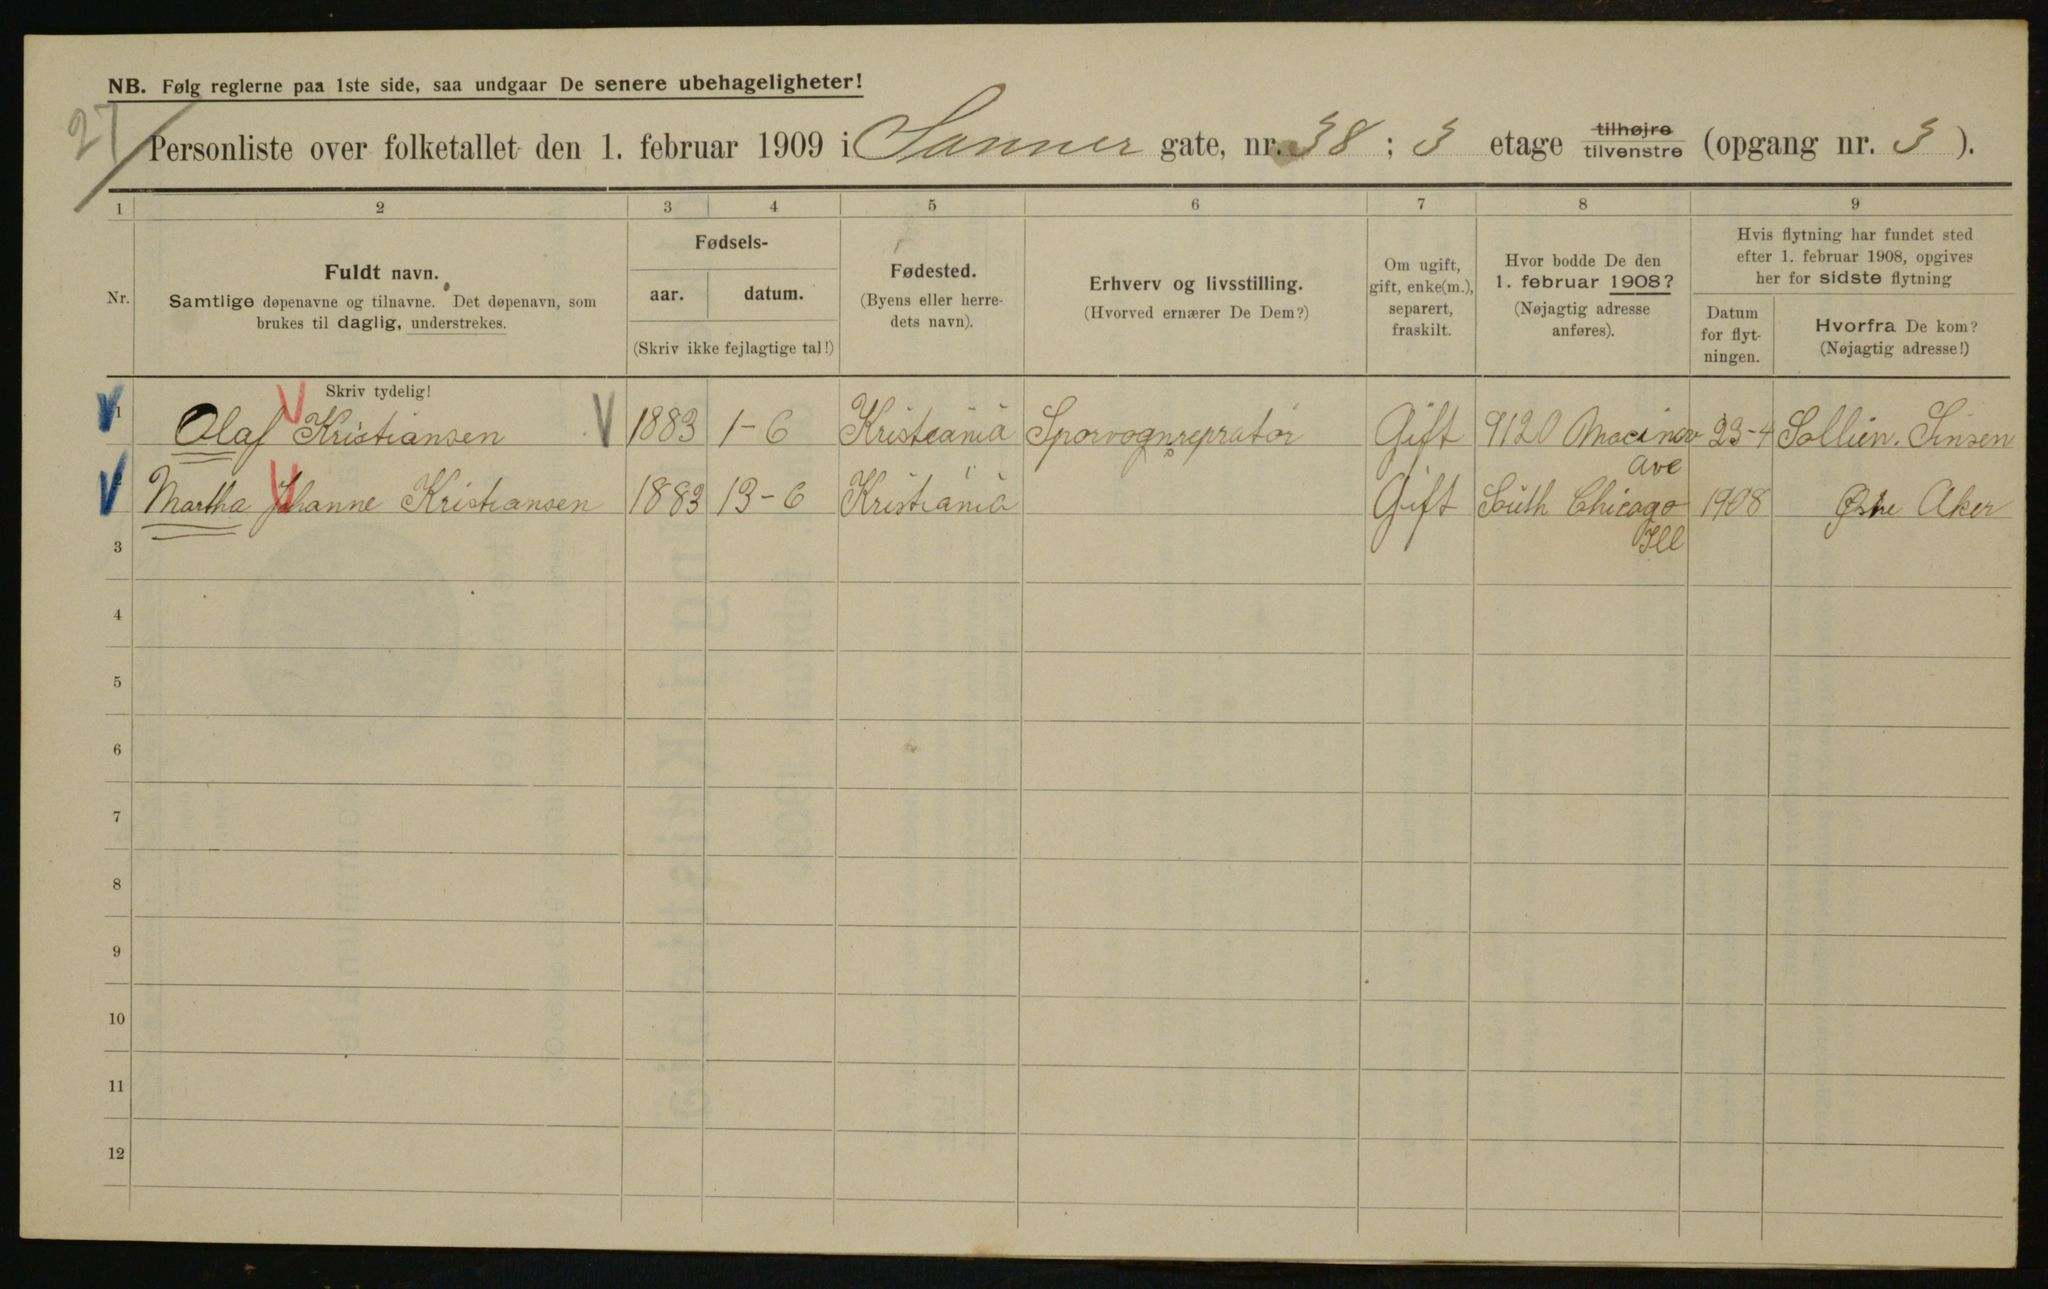 NB. Følg reglerne paa 1ste side, saa undgaar De senere ubehageligheter!
27
Personliste over folketallet den 1. februar 1909 i Sanner gate, nr. 38 ; 3 etage tilhøjre tilvenstre (opgang nr. 3 ).
1 2 3 4 5 6 7 8 9
Nr.
Fuldt navn.
Samtlige døpenavne og tilnavne. Det døpenavn, som
brukes til daglig, understrekes.
Fødsels-
aar. datum.
(Skriv ikke fejlagtige tal!)
Fødested.
(Byens eller herre-
dets navn).
Erhverv og livsstilling.
(Hvorved ernærer De Dem?)
Om ugift,
gift, enke(m.),
separert,
fraskilt.
Hvor bodde De den
1. februar 1908?
(Nøjagtig adresse
anføres).
Hvis flytning har fundet sted
efter 1. februar 1908, opgives
her for sidste flytning
Datum
for flyt-
ningen.
Hvorfra De kom?
(Nøjagtig adresse!)
Skriv tydelig!
1 Olaf Kristiansen 1883 1-6 Kristiania Sporvognsrepratør Gift 9120 23-4 Sollien. Sinsen
Ave
2 Martha Johanne Kristiansen 1883 13-6 Kristiania Gift South Chicago 1908 Østre Aker
Ill
3
4
5
6
7
8
9
10
11
12